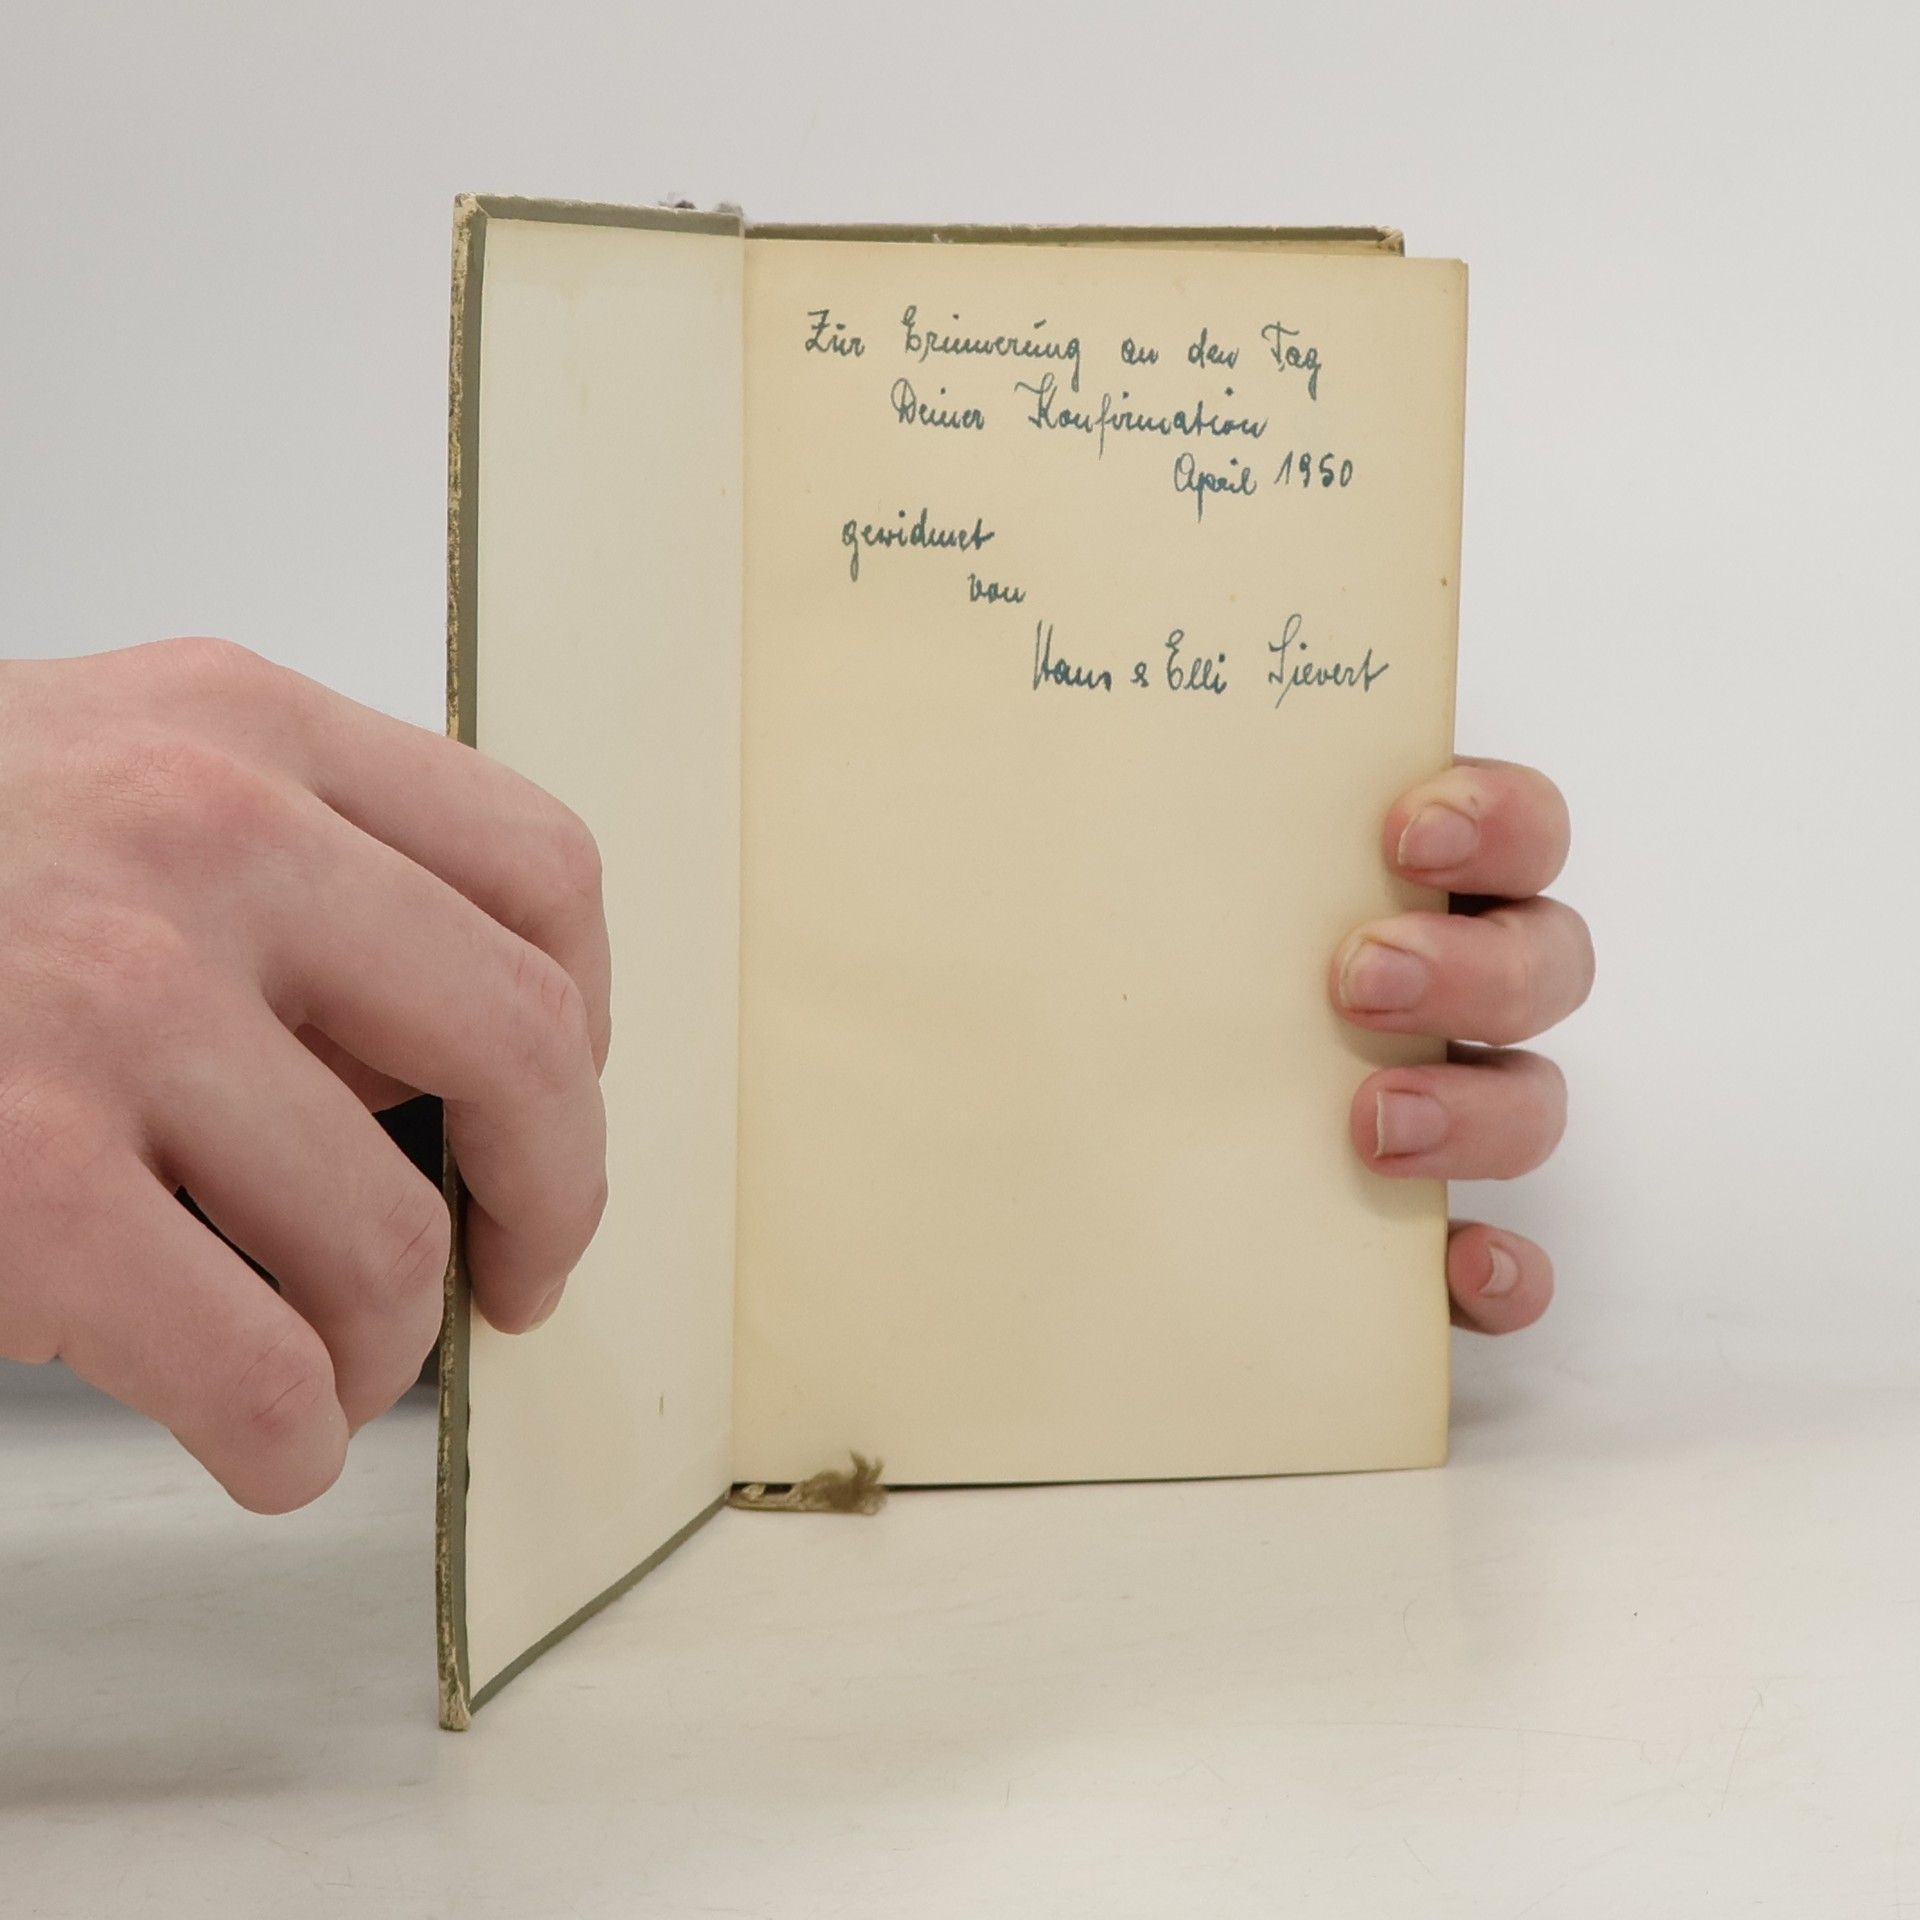 Zur Erinnerung an den Tag
Deiner Konfirmation
April 1950
gewidmet
von
Hans & Elli Sievert